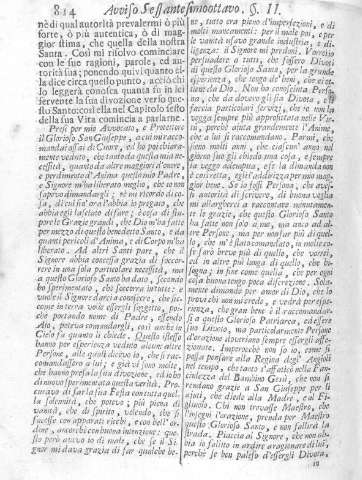 814 Avviso Sessantesimottavo. §. II.
nè di qual autorità prevalermi ò più
forte, ò più autentica, ò di mag-
gior stima, che quella della nostra
Santa. Così mi risolvo cominciare
con le sue ragioni, parole, ed au-
torità sua; ponendo quivi quanto el-
la dice circa questo punto, acciò chi
lo leggerà conosca quanta fu in lei
fervente la sua divozione verso que-
sto Santo: così ella nel Capitolo sesto
della sua Vita comincia a parlarne.
Presi per mio Avvocato, e Protettore
il Glorioso San Giuseppe, a cui mi racco-
mandai assai di Cuore, ed hò poi chiara-
mente veduto, che tanto da questa mia ne-
cessità, quanto da altre maggiori d'onore,
e perdimento d'Anima questo mio Padre,
e Signore m'hà liberato meglio, che io non
sapeva dimandargli: nè mi ricordo d'aver-
la, di cui sin'ora l'abbia io pregato, che
abbia egli lasciato di fare; è cosa di stu-
pore le Grazie grandi, che Dio m'ha fatte
per mezzo di questo benedetto Santo, e da
quanti pericoli d'Anima, e di Corpo m'hà
liberato. Ad altri Santi pare, che il
Signore abbia concessa grazia di soccor-
rere in una sola particolare necessità, ma
a questo Glorioso Santo ha dato, secondo
hò sperimentato, che soccorra in tutte: e
vuole il Signore darci a conoscere, che sic-
come in terra volle essergli soggetto, poi-
chè portando nome di Padre, essendo
Ajo, poteva comandargli, così anche in
Cielo fa quanto li chiede. Questo stesso
hanno per esperienza veduto alcune altre
Persone, alle quali diceva io, che si rac-
comandassero a lui; e già vi son molte,
che hanno della sua divozione, ed io hò
di nuovo sperimentata questa verità. Pro-
curava di far la sua Festa con tutta quel-
la solennità, che poteva, più piena di
vanità, che di spirito, volendo, che si
facesse con apparati ricchi, e con bell'or-
dine, ancorchè con buona intenzione: que-
sto però aveva io di male, che se il Si-
gnore mi dava grazia di far qualche be-
ne, tutto era pieno d'imperfezioni, e di
molti mancamenti: per il male poi, e per
le vanità usavo grande industria, e di-
ligenza: il Signore mi perdoni. Vorrei io
persuadere a tutti, che fossero Divoti
di questo Glorioso Santo, per la grande
esperienza, che tengo de' beni, che ci ot-
tiene da Dio. Non hò conosciuta Perso-
na, che da dovero gli sia Divota, e che
faccia particolari servizj, che io non la
vegga sempre più approfittata nelle Virtù,
perchè ajuta grandemente l'Anime,
che a lui si raccomandano. Parmi, che
siano molti anni, che ciascun'anno nel
dì della sua festa gli chiedo una cosa, e sempre
la veggo adempiuta, e se la dimanda non
è così retta, egli l'addirizza per mio mag-
gior bene. Se io fossi Persona, che avessi
autorità di scrivere, di buona voglia
mi allargherei a raccontare minutamen-
te le grazie, che questo Glorioso Santo
ha fatte non solo a me, ma anco ad al-
tre Persone, ma per non far più di quel-
lo, che m'è stato comandato, in molte co-
se sarò breve più di quello, che vorrei,
ed in altre più lunga di quello, che bi-
sogna; in fine come quella, che per ogni
cosa buona tengo poca discrezione. Sola-
mente dimando per amor di Dio, che lo
provi chi non mi crede, e vedrà per espe-
rienza, che gran bene è il raccomandar-
si a questo Glorioso Patriarca, ed esser-
gli Divoto, ma particolarmente Persone
d'orazione doveriano sempre essergli affe-
zionate. Imperocchè non sò io, come si
possa pensare alla Regina degli Angioli
nel tempo, che tanto s'affaticò nella Fan-
ciullezza del Bambino Gesù, che non si
rendano grazie a San Giuseppe per li
ajuti, che diede alla Madre, e al Fi-
gliuolo. Chi non trovasse Maestro, che
l'insegni l'orazione, prenda per Maestro
questo Glorioso Santo, e non fallirà la
strada. Piaccia al Signore, che non ab-
bia io errato in ardire a ragionare di lui,
perchè se ben paleso d'essergli Divota,
in